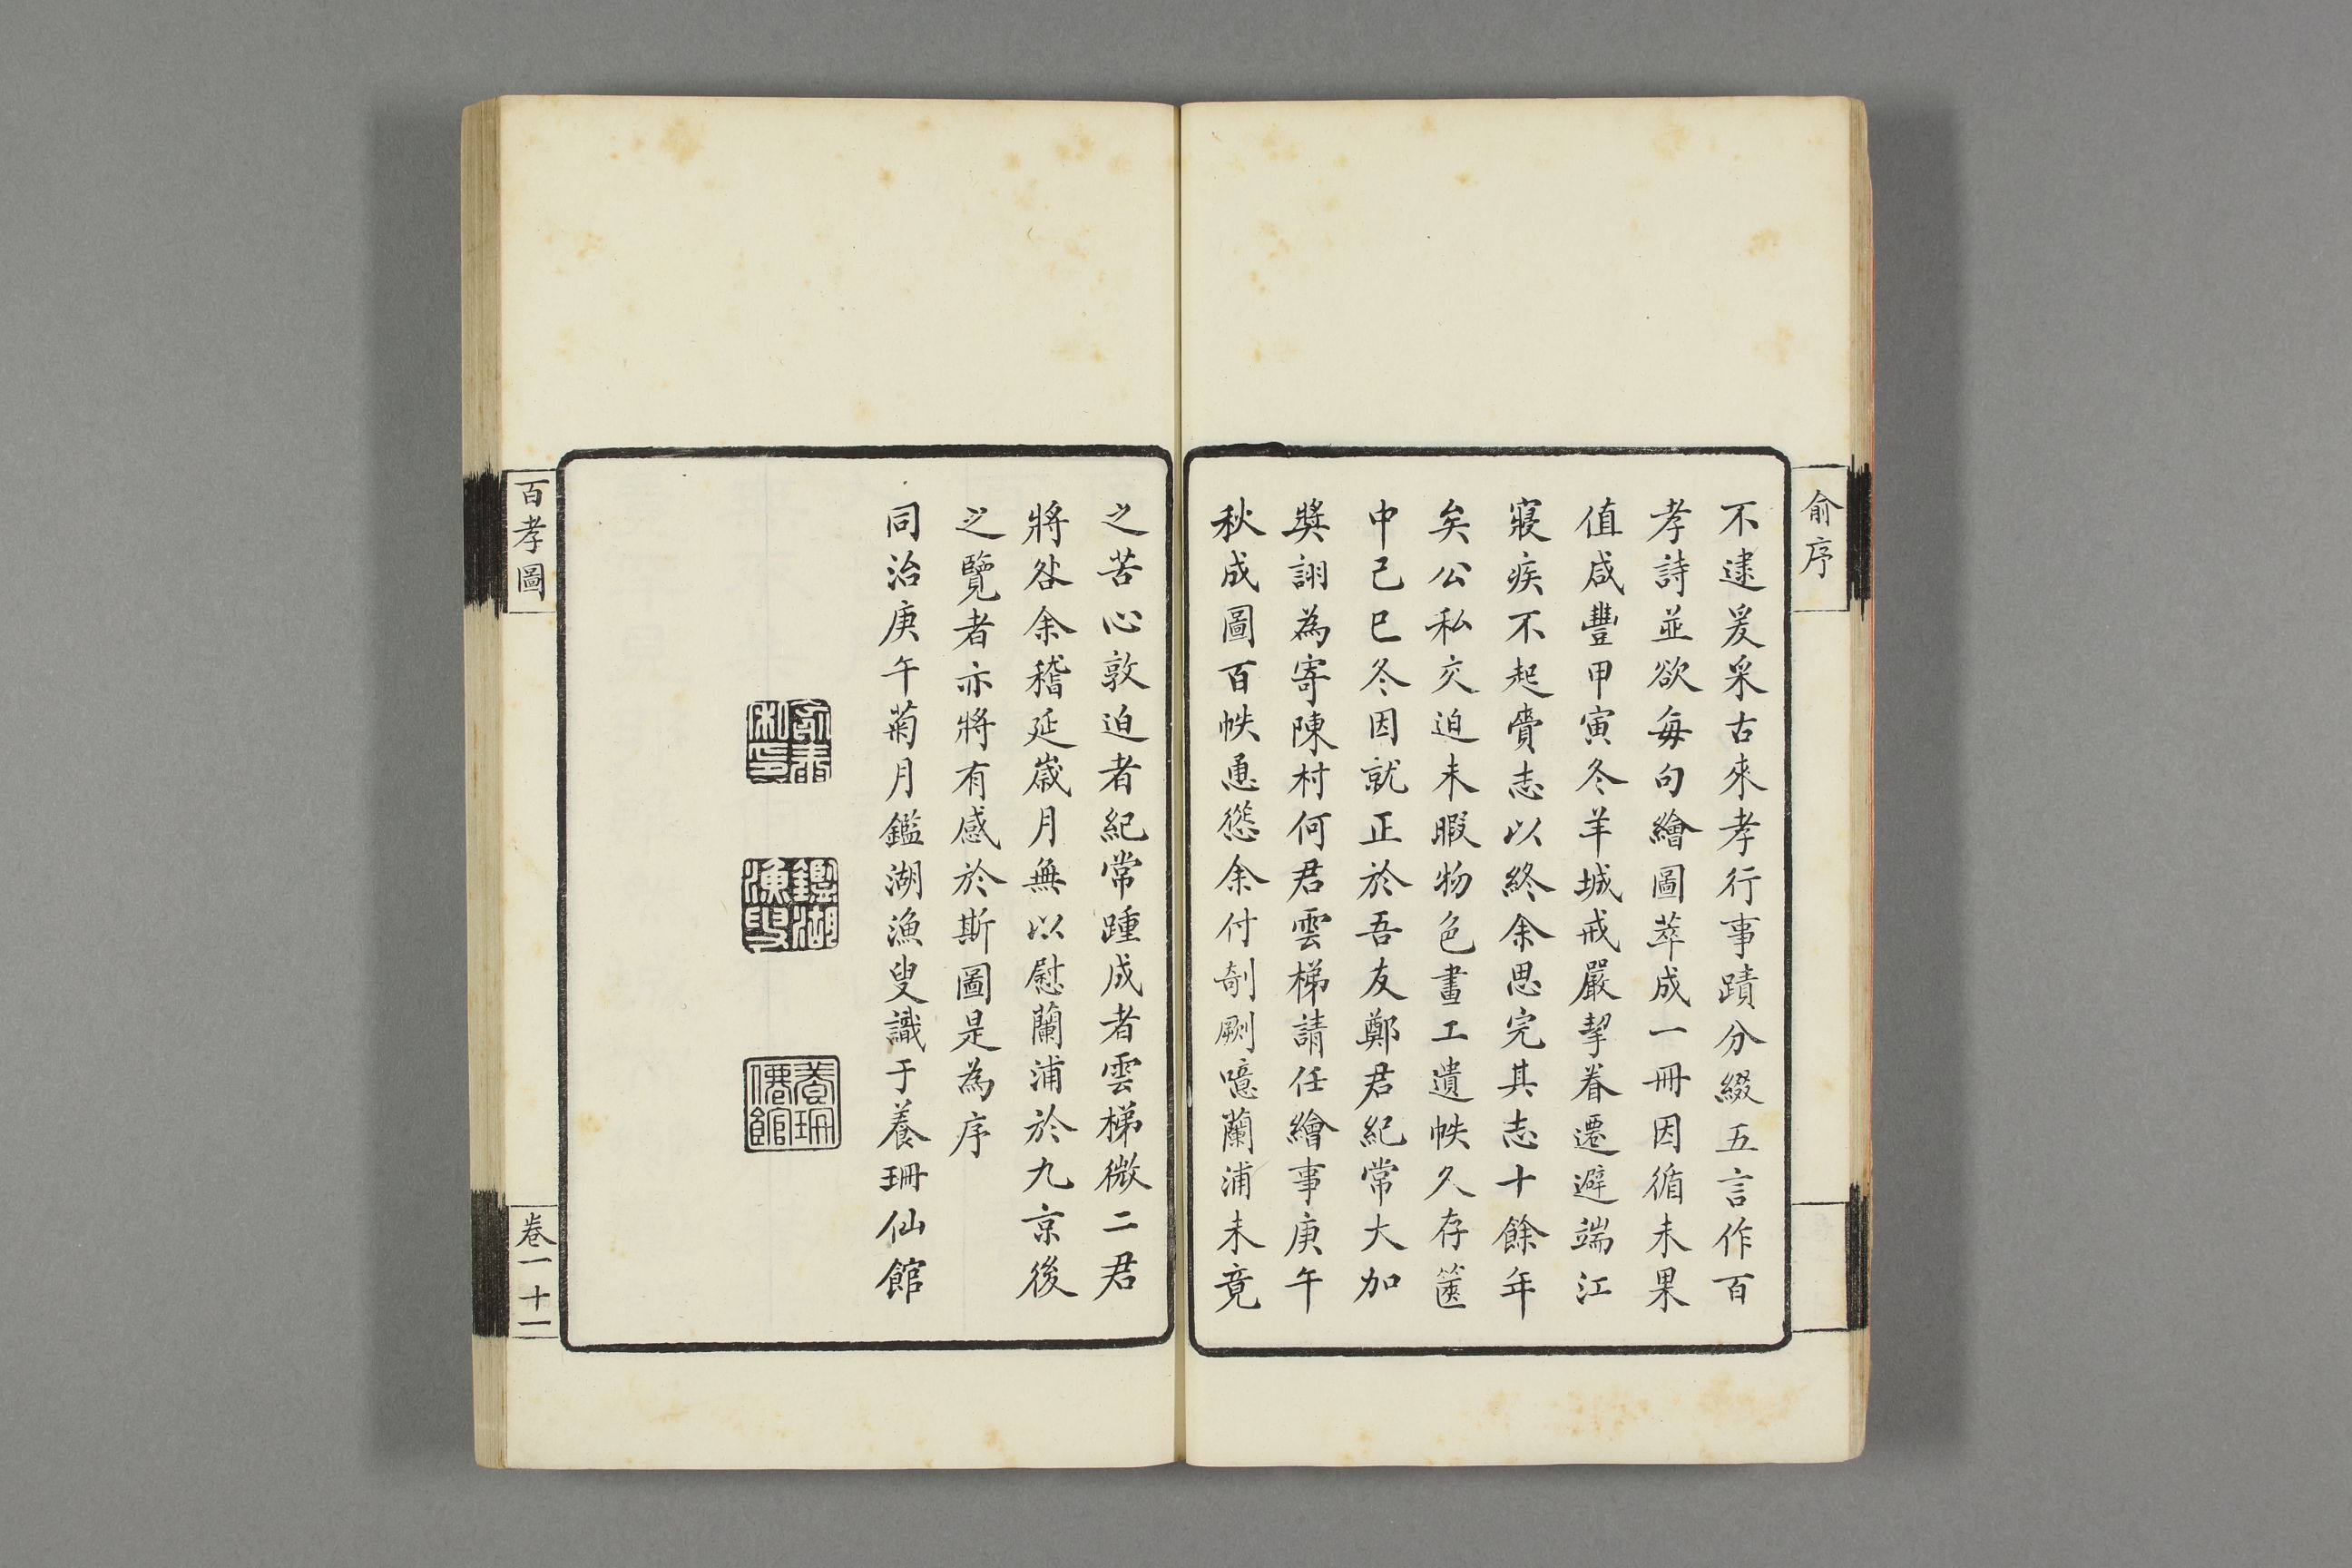 俞序
不逮爰采古來孝行事蹟分綴五言作百
孝詩並欲每句繪圖萃成一冊因循未果
值咸豐甲寅冬羊城戒嚴挈眷遷避端江
寢疾不起賷志以終余思完其志十餘年
矣公私交迫未暇物色畫工遺帙久存篋
中己巳冬因就正於吾友鄭君紀常大加
獎詡為寄陳村何君雲梯請任繪事庚午
秋成圖百帙慂慫余付剞劂噫蘭浦未竟
之苦心敦迫者紀常踵成者雲梯微二君
將咎余稽延歲月無以慰蘭浦於九京後
之覽者亦將有感於斯圖是為序
同治庚午菊月鑑湖漁叟識于養珊仙館
私印
鑑湖
漁叟
養珊
僊館
百孝圖
卷一 十一